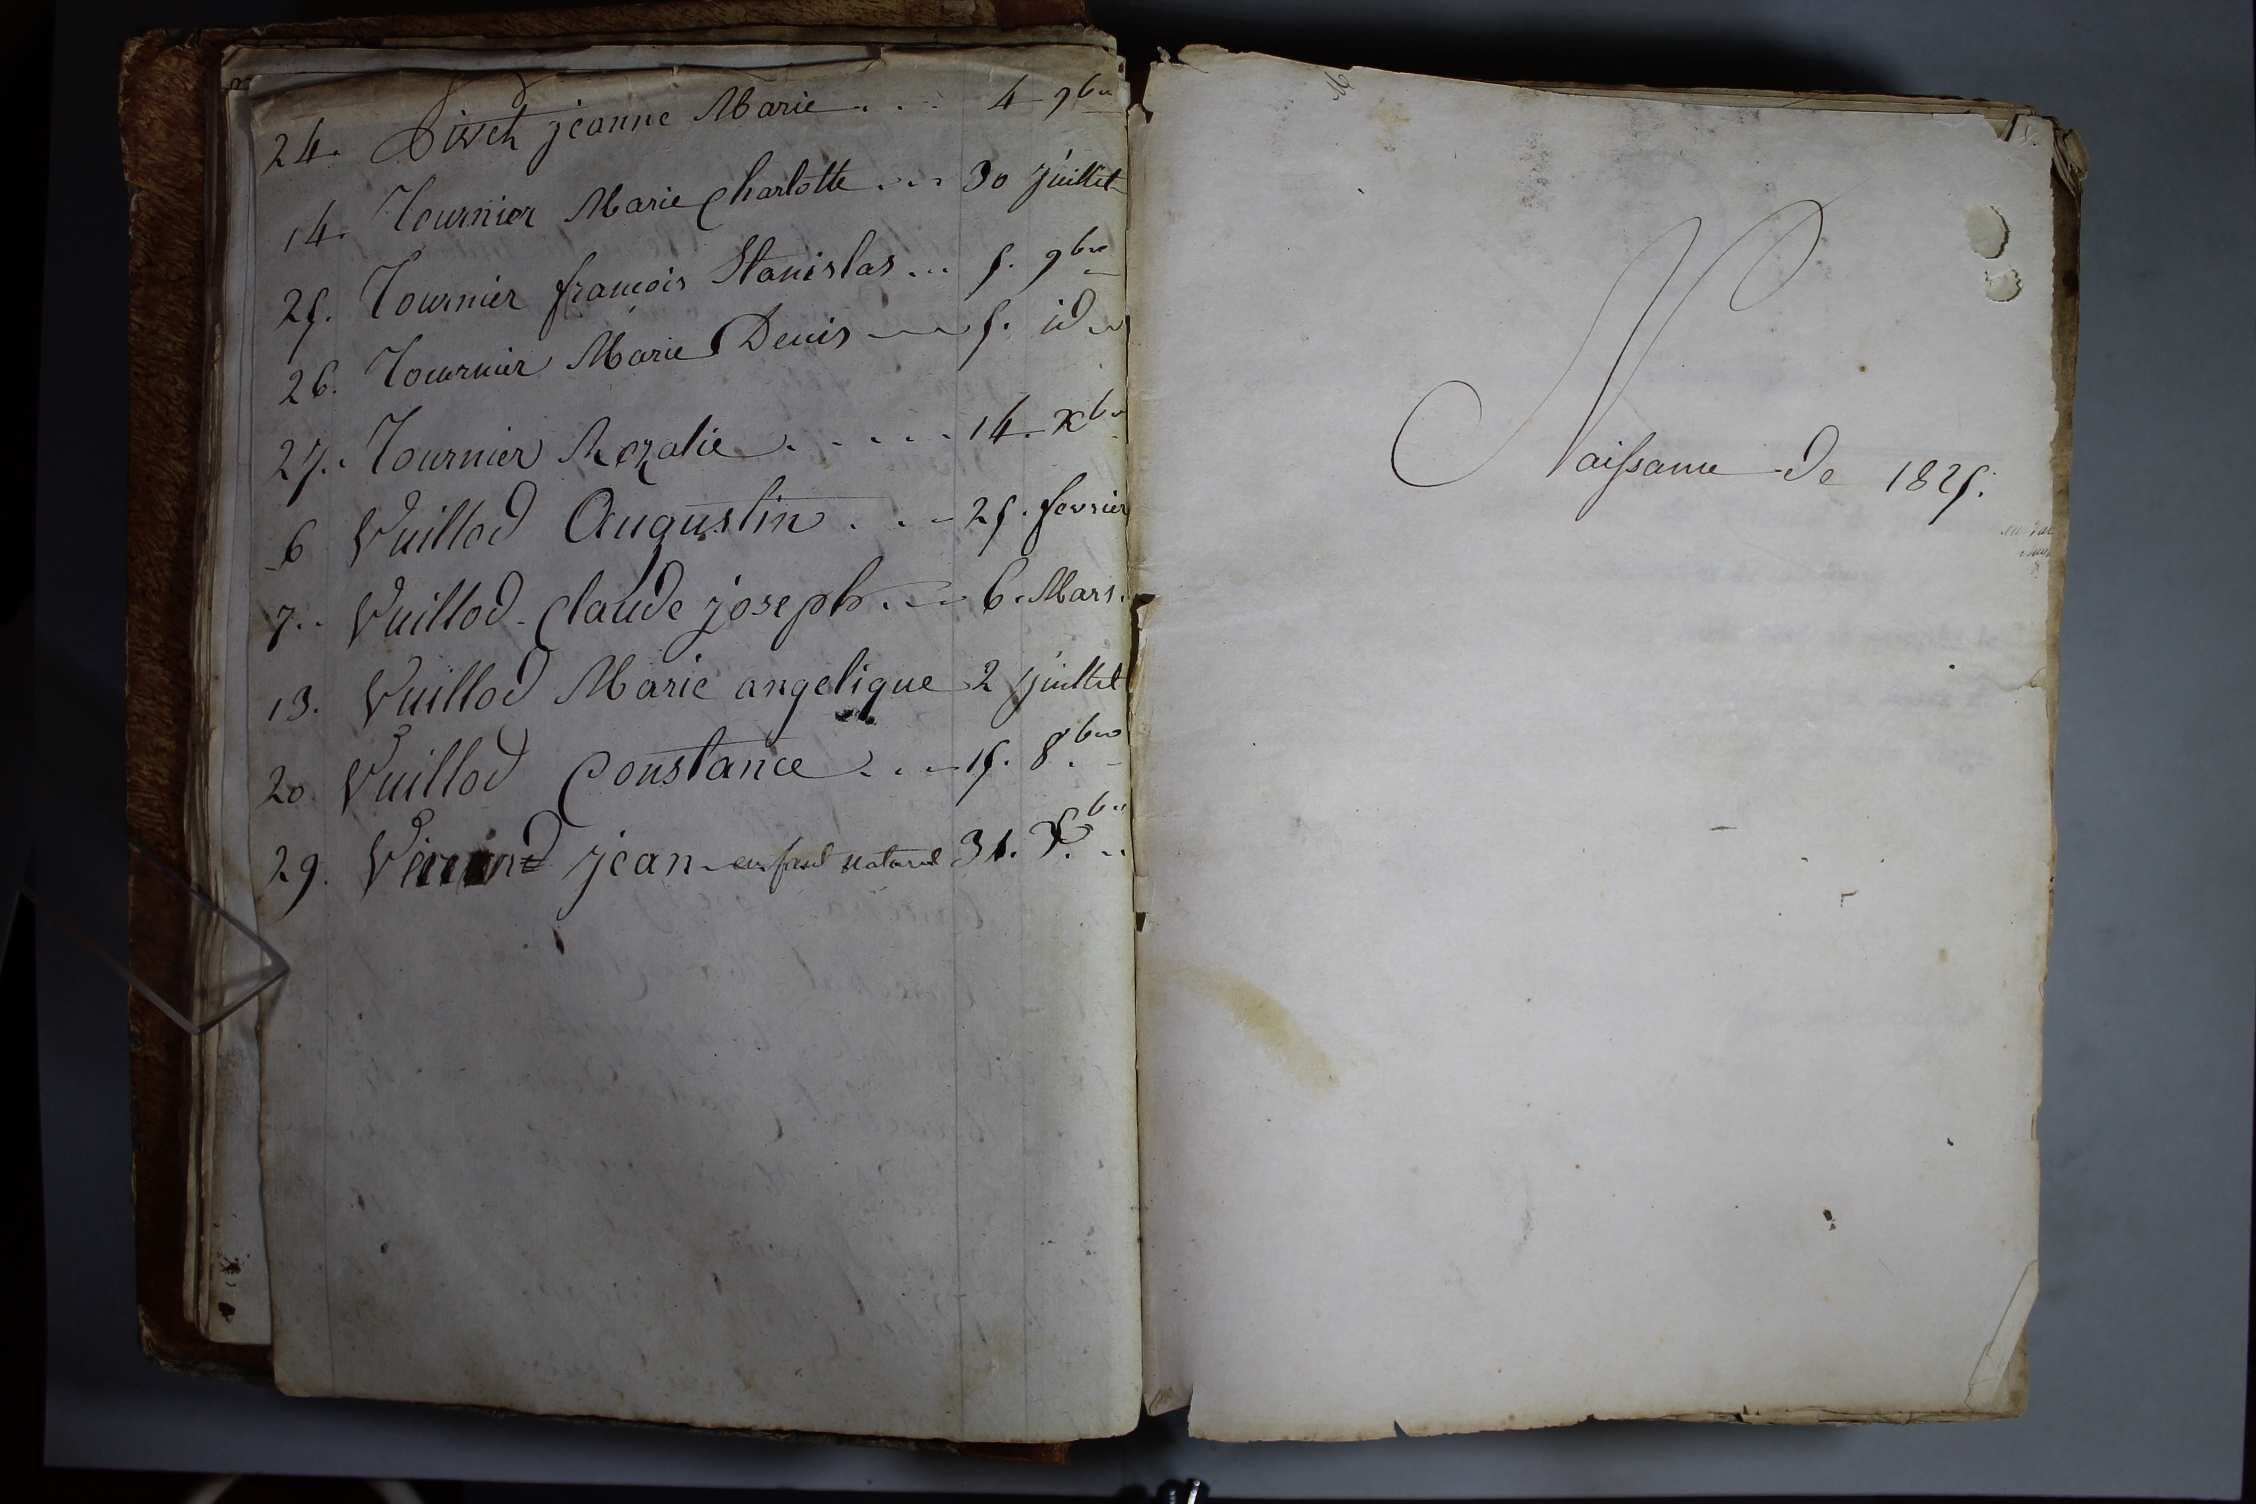 24. Sivet jeanne Marie . . . 4 9bre
14. Tournier Marie Charlotte . . . 30 juillet
25. Tournier françois Stanislas ... 5. 9bre
26. Tournier Marie Denis 5. id
27. Tournier Rozalie . . . . . 14. Xbre
6 Vuillod Augustin . . . 25. fevrier
7. Vuillod Claude joseph . . . 6. Mars.
13. Vuillod Marie angelique 2 juillet
20. Vuillod Constance . . . 15. 8bre
29. jean enfant naturel 31. Xbre
Naissance de 1825.